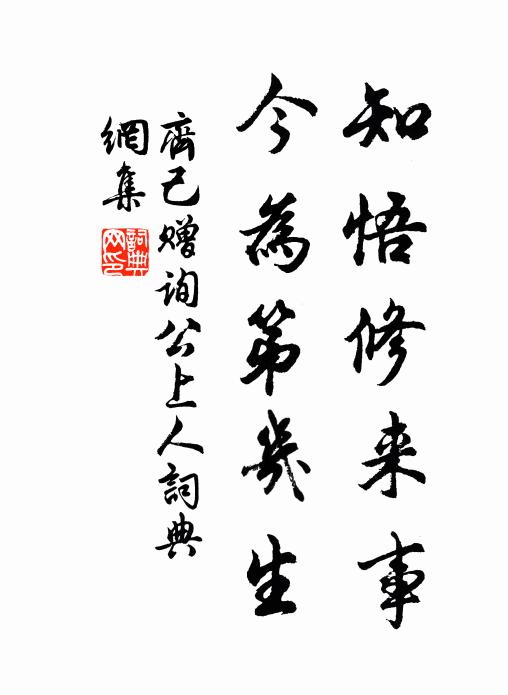 知悟修来事
今為第幾生
齊己赠询公上人詞典
網集
詞典网印